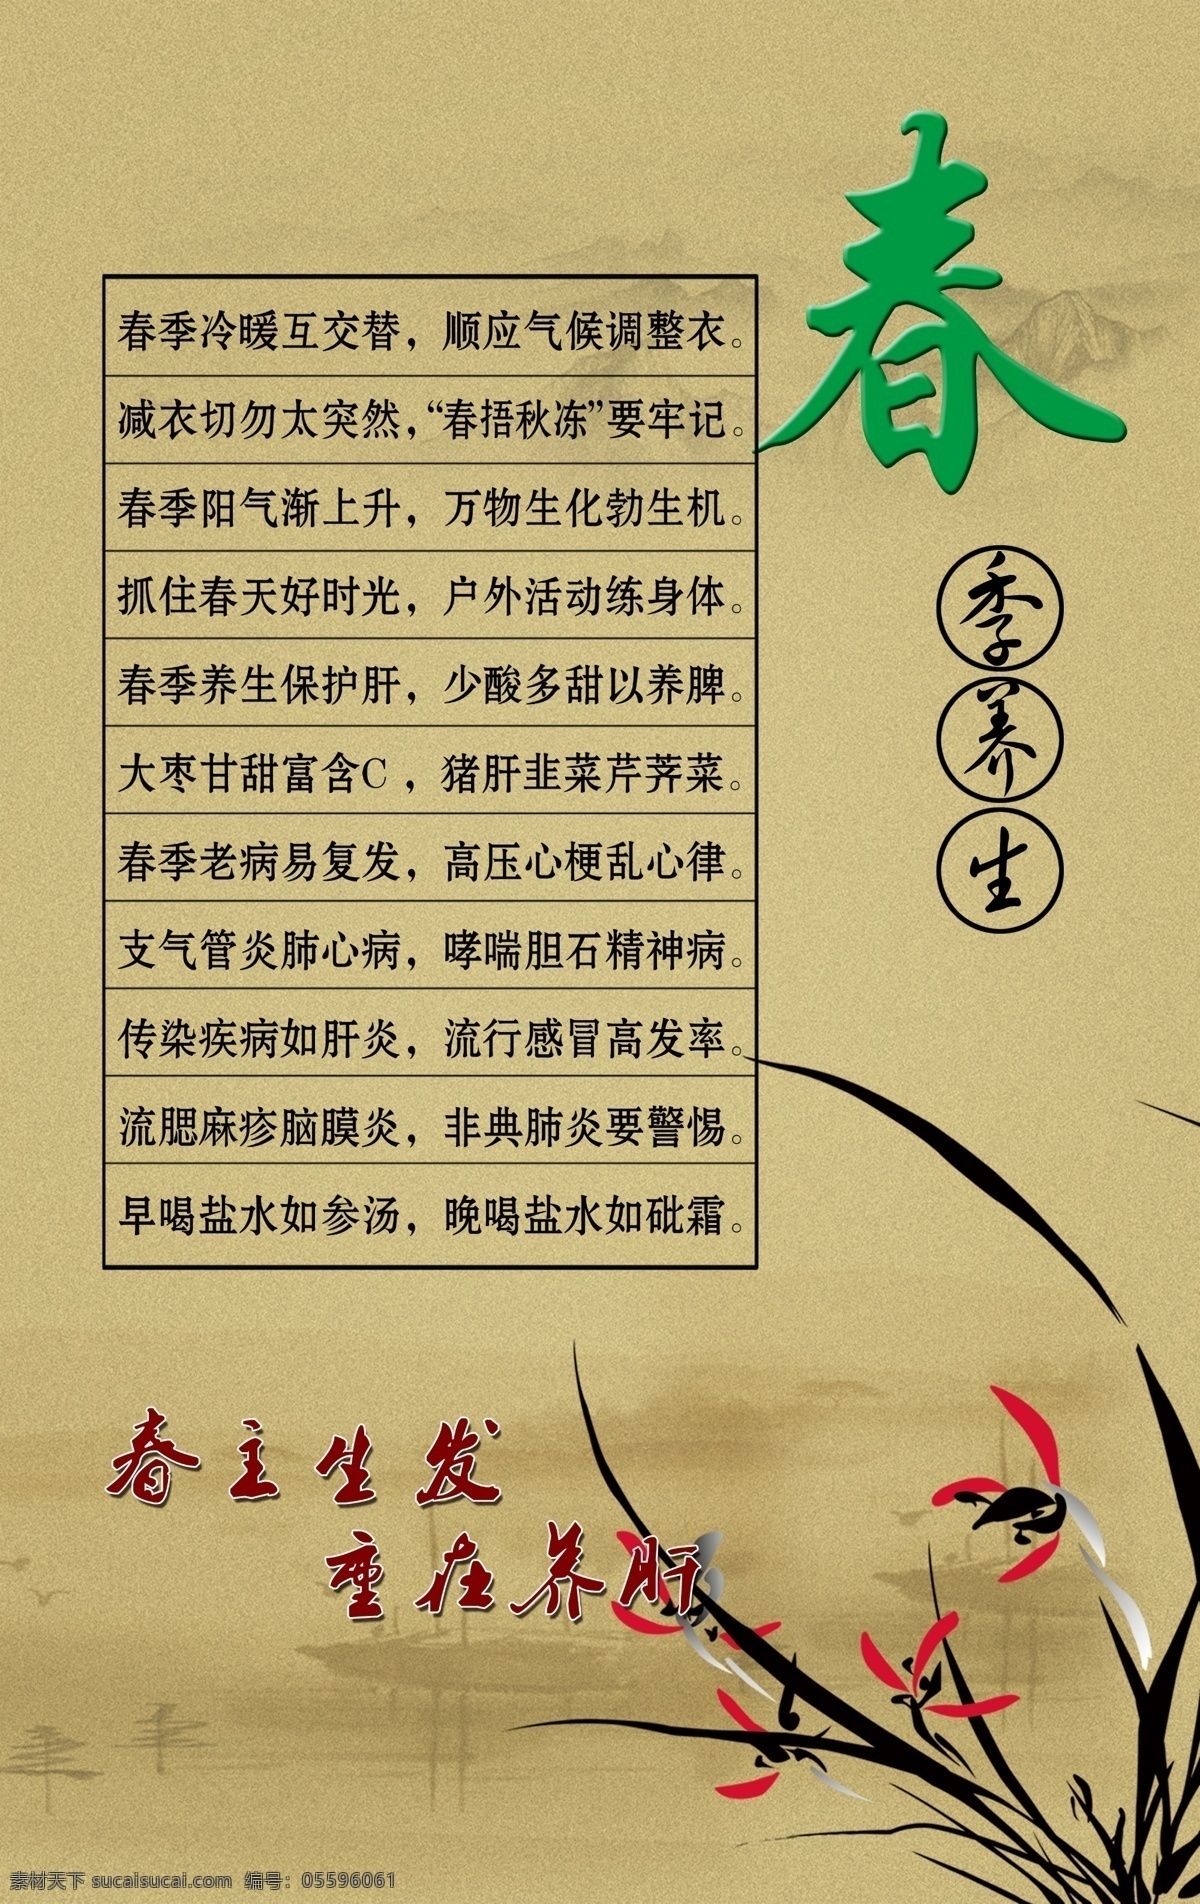 春
季养生
春季冷暖互交替，顺应气候调整衣。
减衣切勿太突然，“春捂秋冻”要牢记。
春季阳气渐上升，万物生化勃生机。
抓住春天好时光，户外活动练身体。
春季养生保护肝，少酸多甜以养脾。
大枣甘甜富含C ，猪肝韭菜芹荠菜。
春季老病易复发，高压心梗乱心律。
支气管炎肺心病，哮喘胆石精神病。
传染疾病如肝炎，流行感冒高发率。
流腮麻疹脑膜炎，非典肺炎要警惕。
早喝盐水如参汤，晚喝盐水如砒霜。
春主生发
重在养肝
素材天下 sucaisucai.com 编号：05596061